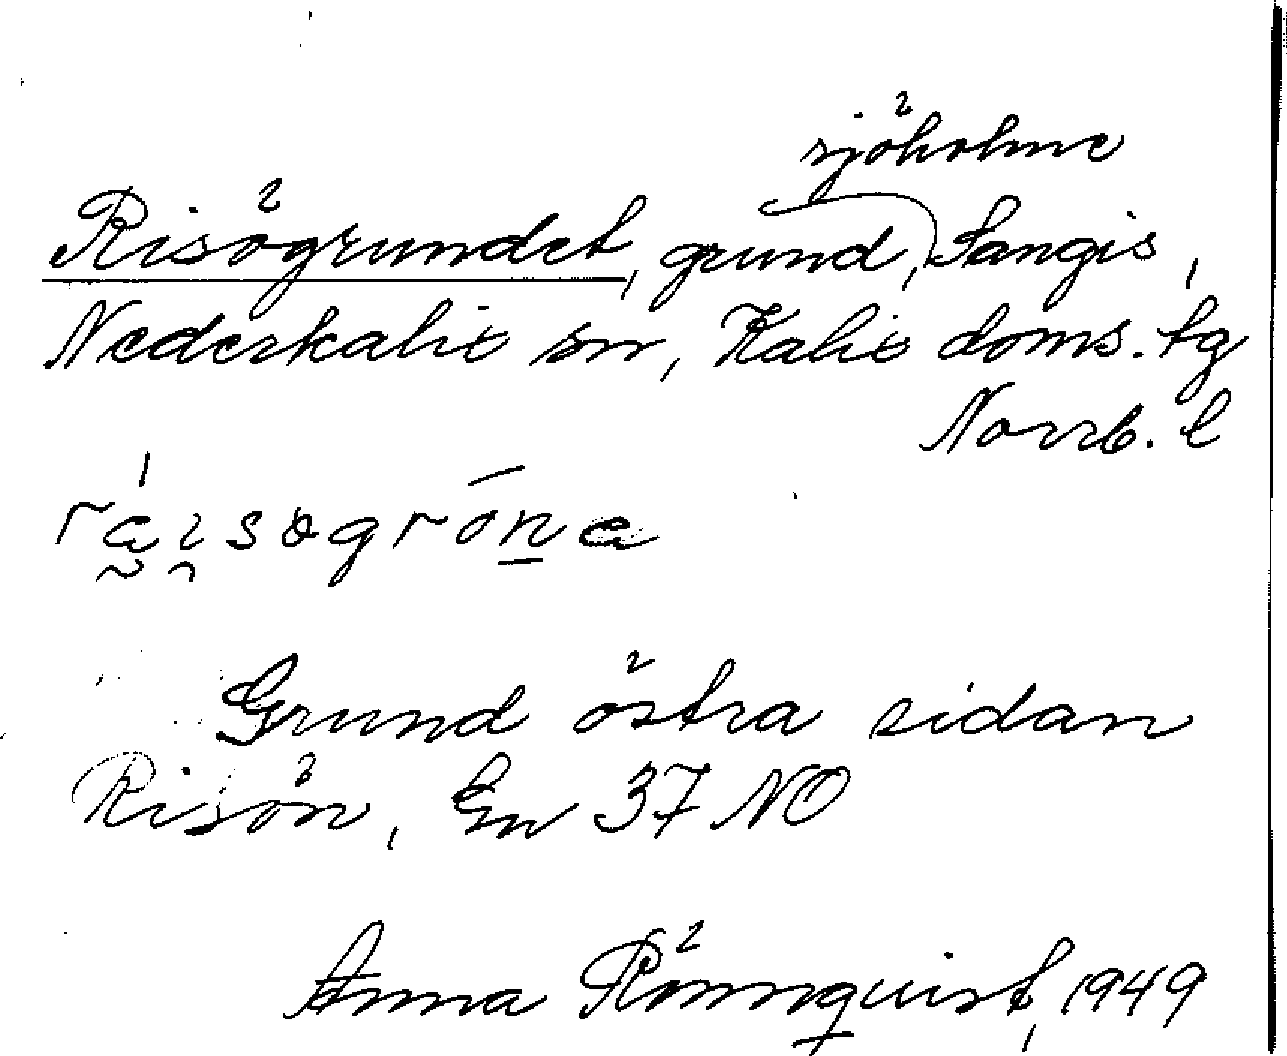 sjöholme
Risögrundet, grund, Sangis,
Nederkalix sn, Kalix doms. tg
Norrb. l
Grund östra sidan
Risön, En 37 NO
Anna Rönnquist, 1949